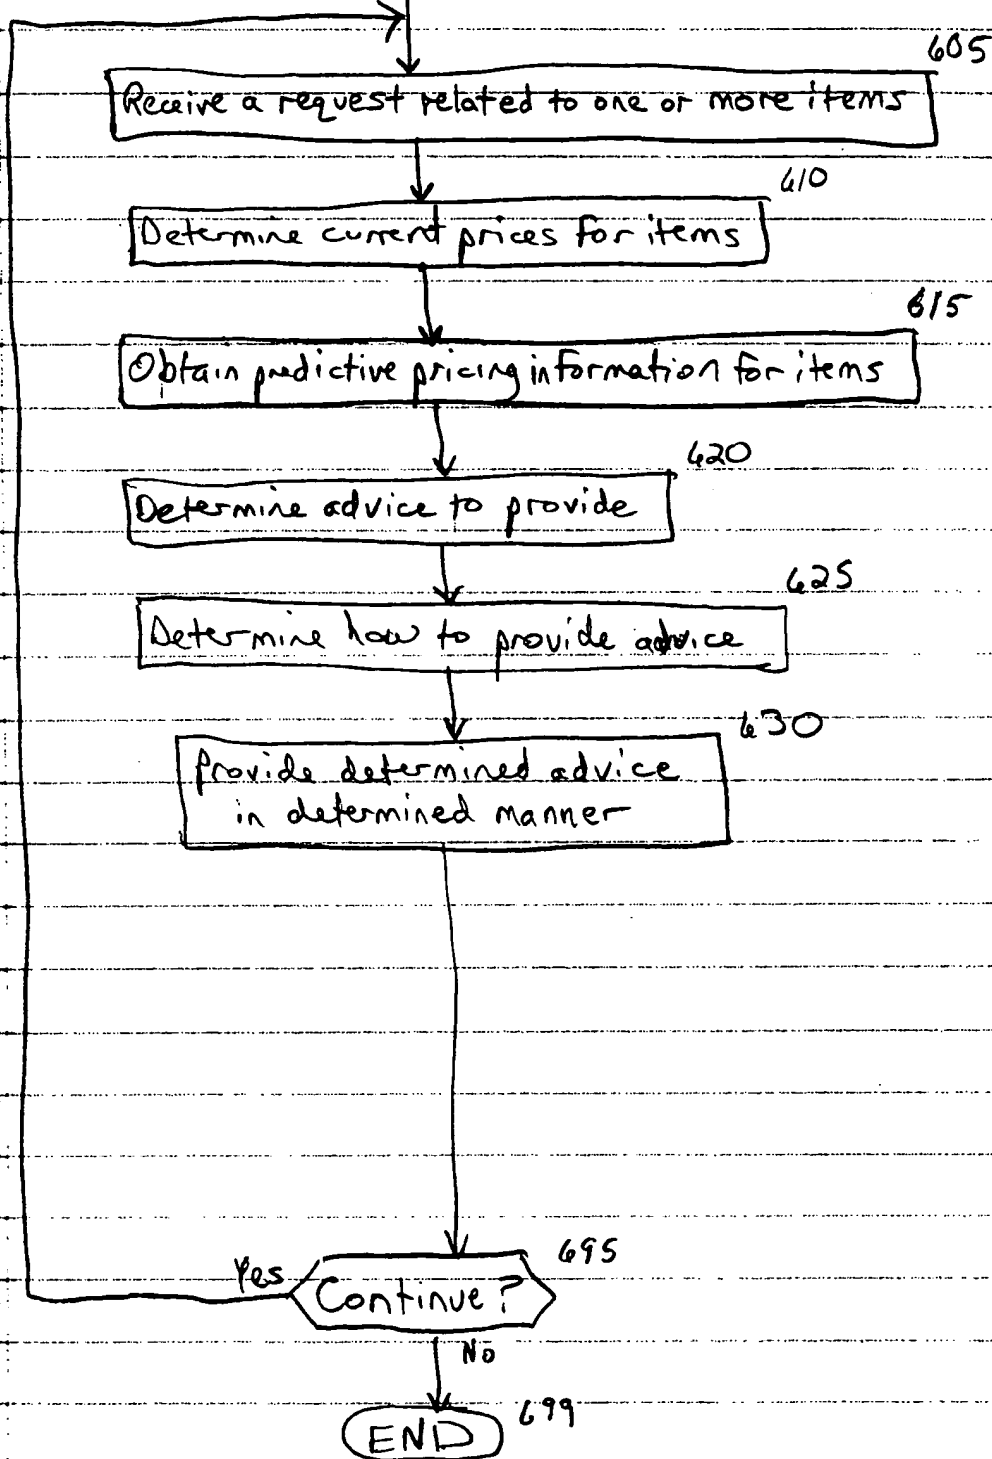 605
Receive a request related to one or more items
610
Determine current prices for items
615
Obtain predictive pricing information for items
620
Determine advice to provide
625
Determine how to provide advice
630
Provide determined advice
in determined manner
695
Yes
Continue?
No
699
END